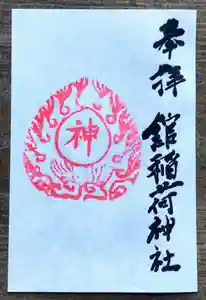 奉拝
舘稲荷神社
神